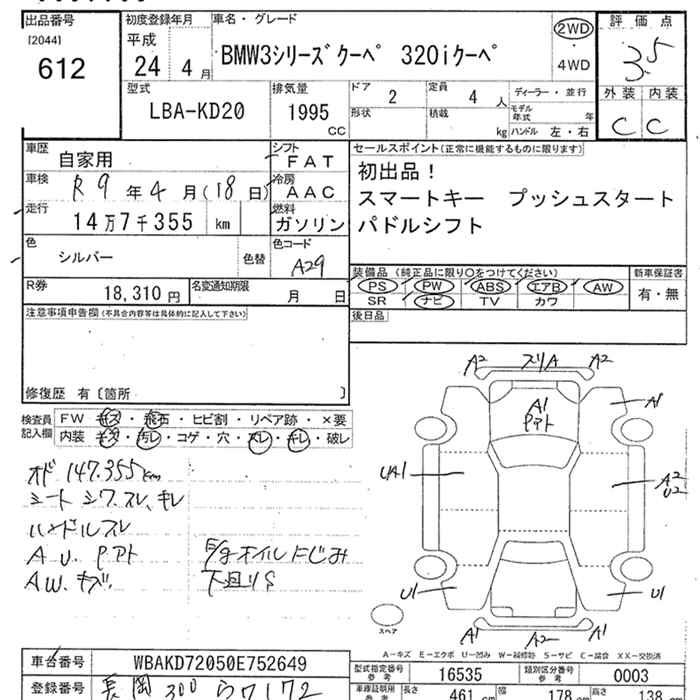 出品番号 初度登録年月 車名・グレード 評価点
[2044] 平成
612 24年 4月 BMW3シリーズクーペ 320iクーペ 2WD ・ 4WD 3.5
型式 排気量 ドア 2 定員 4人 ディーラー・並行 外装 内装
LBA-KD20 1995 CC 形状 積載 kg モデル年式 年 ハンドル 左・右 C C
車歴 自家用 シフト FAT セールスポイント(正常に機能するものに限ります)
車検 R9年4月(18日) 冷房 AAC 初出品!
走行 14万7千355 km 燃料 ガソリン スマートキー プッシュスタート
パドルシフト
色 シルバー 色替 色コード A29
装備品(純正品に限り○をつけてください) 新車保証書
R券 18,310円 名変通知期限 月 日 PS PW ABS エアB AW 有・無
SR ナビ TV カワ
注意事項申告欄(不具合内容等は具体的に記入して下さい) 後日品
修復歴 有〔箇所 〕
検査員記入欄 FW キズ・飛石・ヒビ割・リペア跡・×要
内装 キズ・汚レ・コゲ・穴・スレ・キレ・破レ
オド 147,355km
シート シワ.スレ.キレ
ハンドルスレ
A.U. Pアト
AW.キズ.
E/gオイルにじみ
下廻りS
A2 スリA A2
A1 Pアト
A1
UA1
A2 U2
U1 U1
スペア
A1 A2 A1
A-キズ E-エクボ U-凹み W-補修跡 S-サビ C-腐食 XX-交換済
車台番号 WBAKD72050E752649 型式指定番号 参考 16535 類別区分番号 参考 0003
登録番号 長岡 300 ら7172 車庫証明用 参考 長さ 461 cm 幅 178 cm 高さ 138 cm